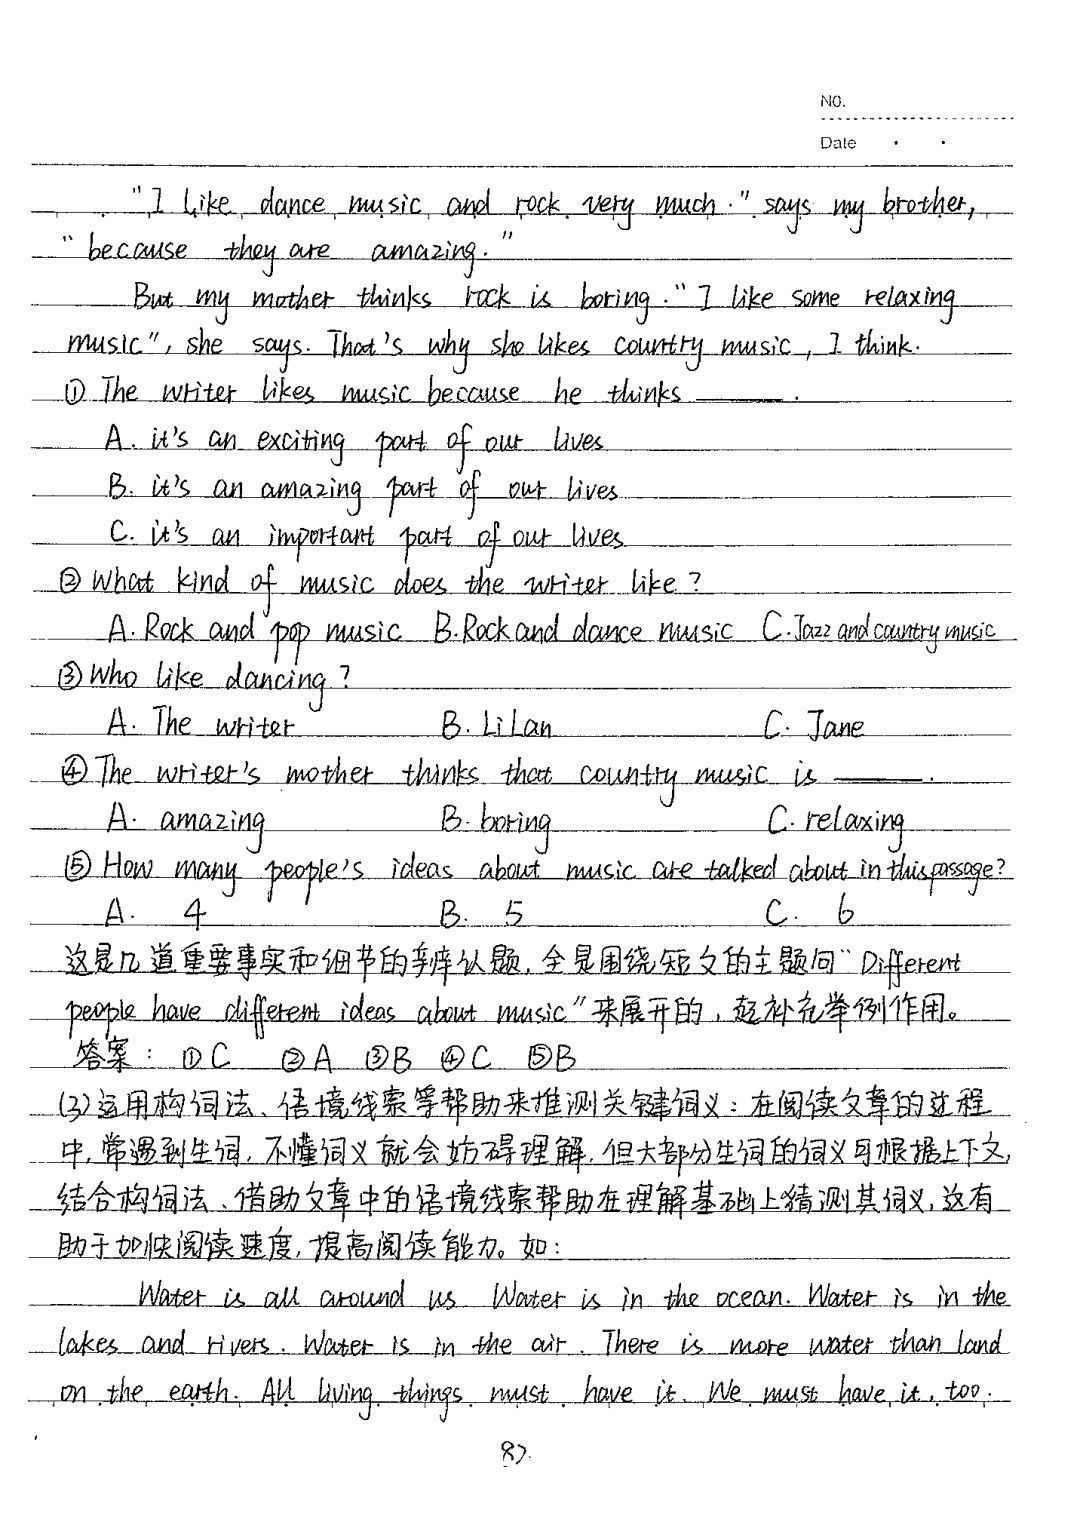 NO.
Date
"I like dance music and rock very much." says my brother,
"because they are amazing."
But my mother thinks rock is boring. "I like some relaxing
music", she says. That's why she likes country music, I think.
①The writer likes music because he thinks ____.
A. it's an exciting part of our lives
B. it's an amazing part of our lives
C. it's an important part of our lives
②What kind of music does the writer like?
A. Rock and pop music B. Rock and dance music C. Jazz and country music
③Who like dancing?
A. The writer B. Li Lan C. Jane
④The writer's mother thinks that country music is ____.
A. amazing B. boring C. relaxing
⑤How many people's ideas about music are talked about in this passage?
A. 4 B. 5 C. 6
这是几道重要事实和细节的辨认题,全是围绕短文的主题问"Different
people have different ideas about music"来展开的,起补充举例作用。
答案: ①C ②A ③B ④C ⑤B
(3)运用构词法、语境线索等帮助来推测关键词义:在阅读文章的过程
中,常遇到生词,不懂词义就会妨碍理解,但大部分生词的词义可根据上下文,
结合构词法、借助文章中的语境线索帮助在理解基础上猜测其词义,这有
助于加快阅读速度,提高阅读能力。如:
Water is all around us Water is in the ocean. Water is in the
lakes and rivers. Water is in the air. There is more water than land
on the earth. All living things must have it. We must have it, too.